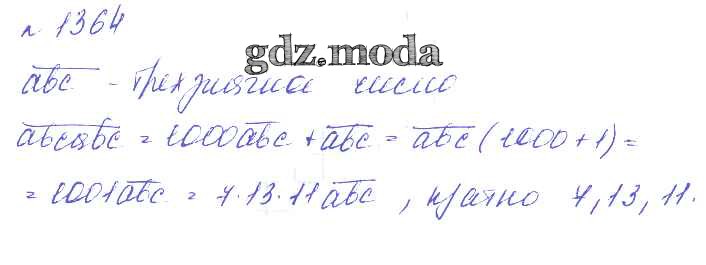 n 1364
gdz.moda
a̅b̅c̅ - трехзначное число
a̅b̅c̅a̅b̅c̅ = 1000a̅b̅c̅ + a̅b̅c̅ = a̅b̅c̅ (1000+1) =
= 1001a̅b̅c̅ = 7·13·11a̅b̅c̅, кратно 7, 13, 11.